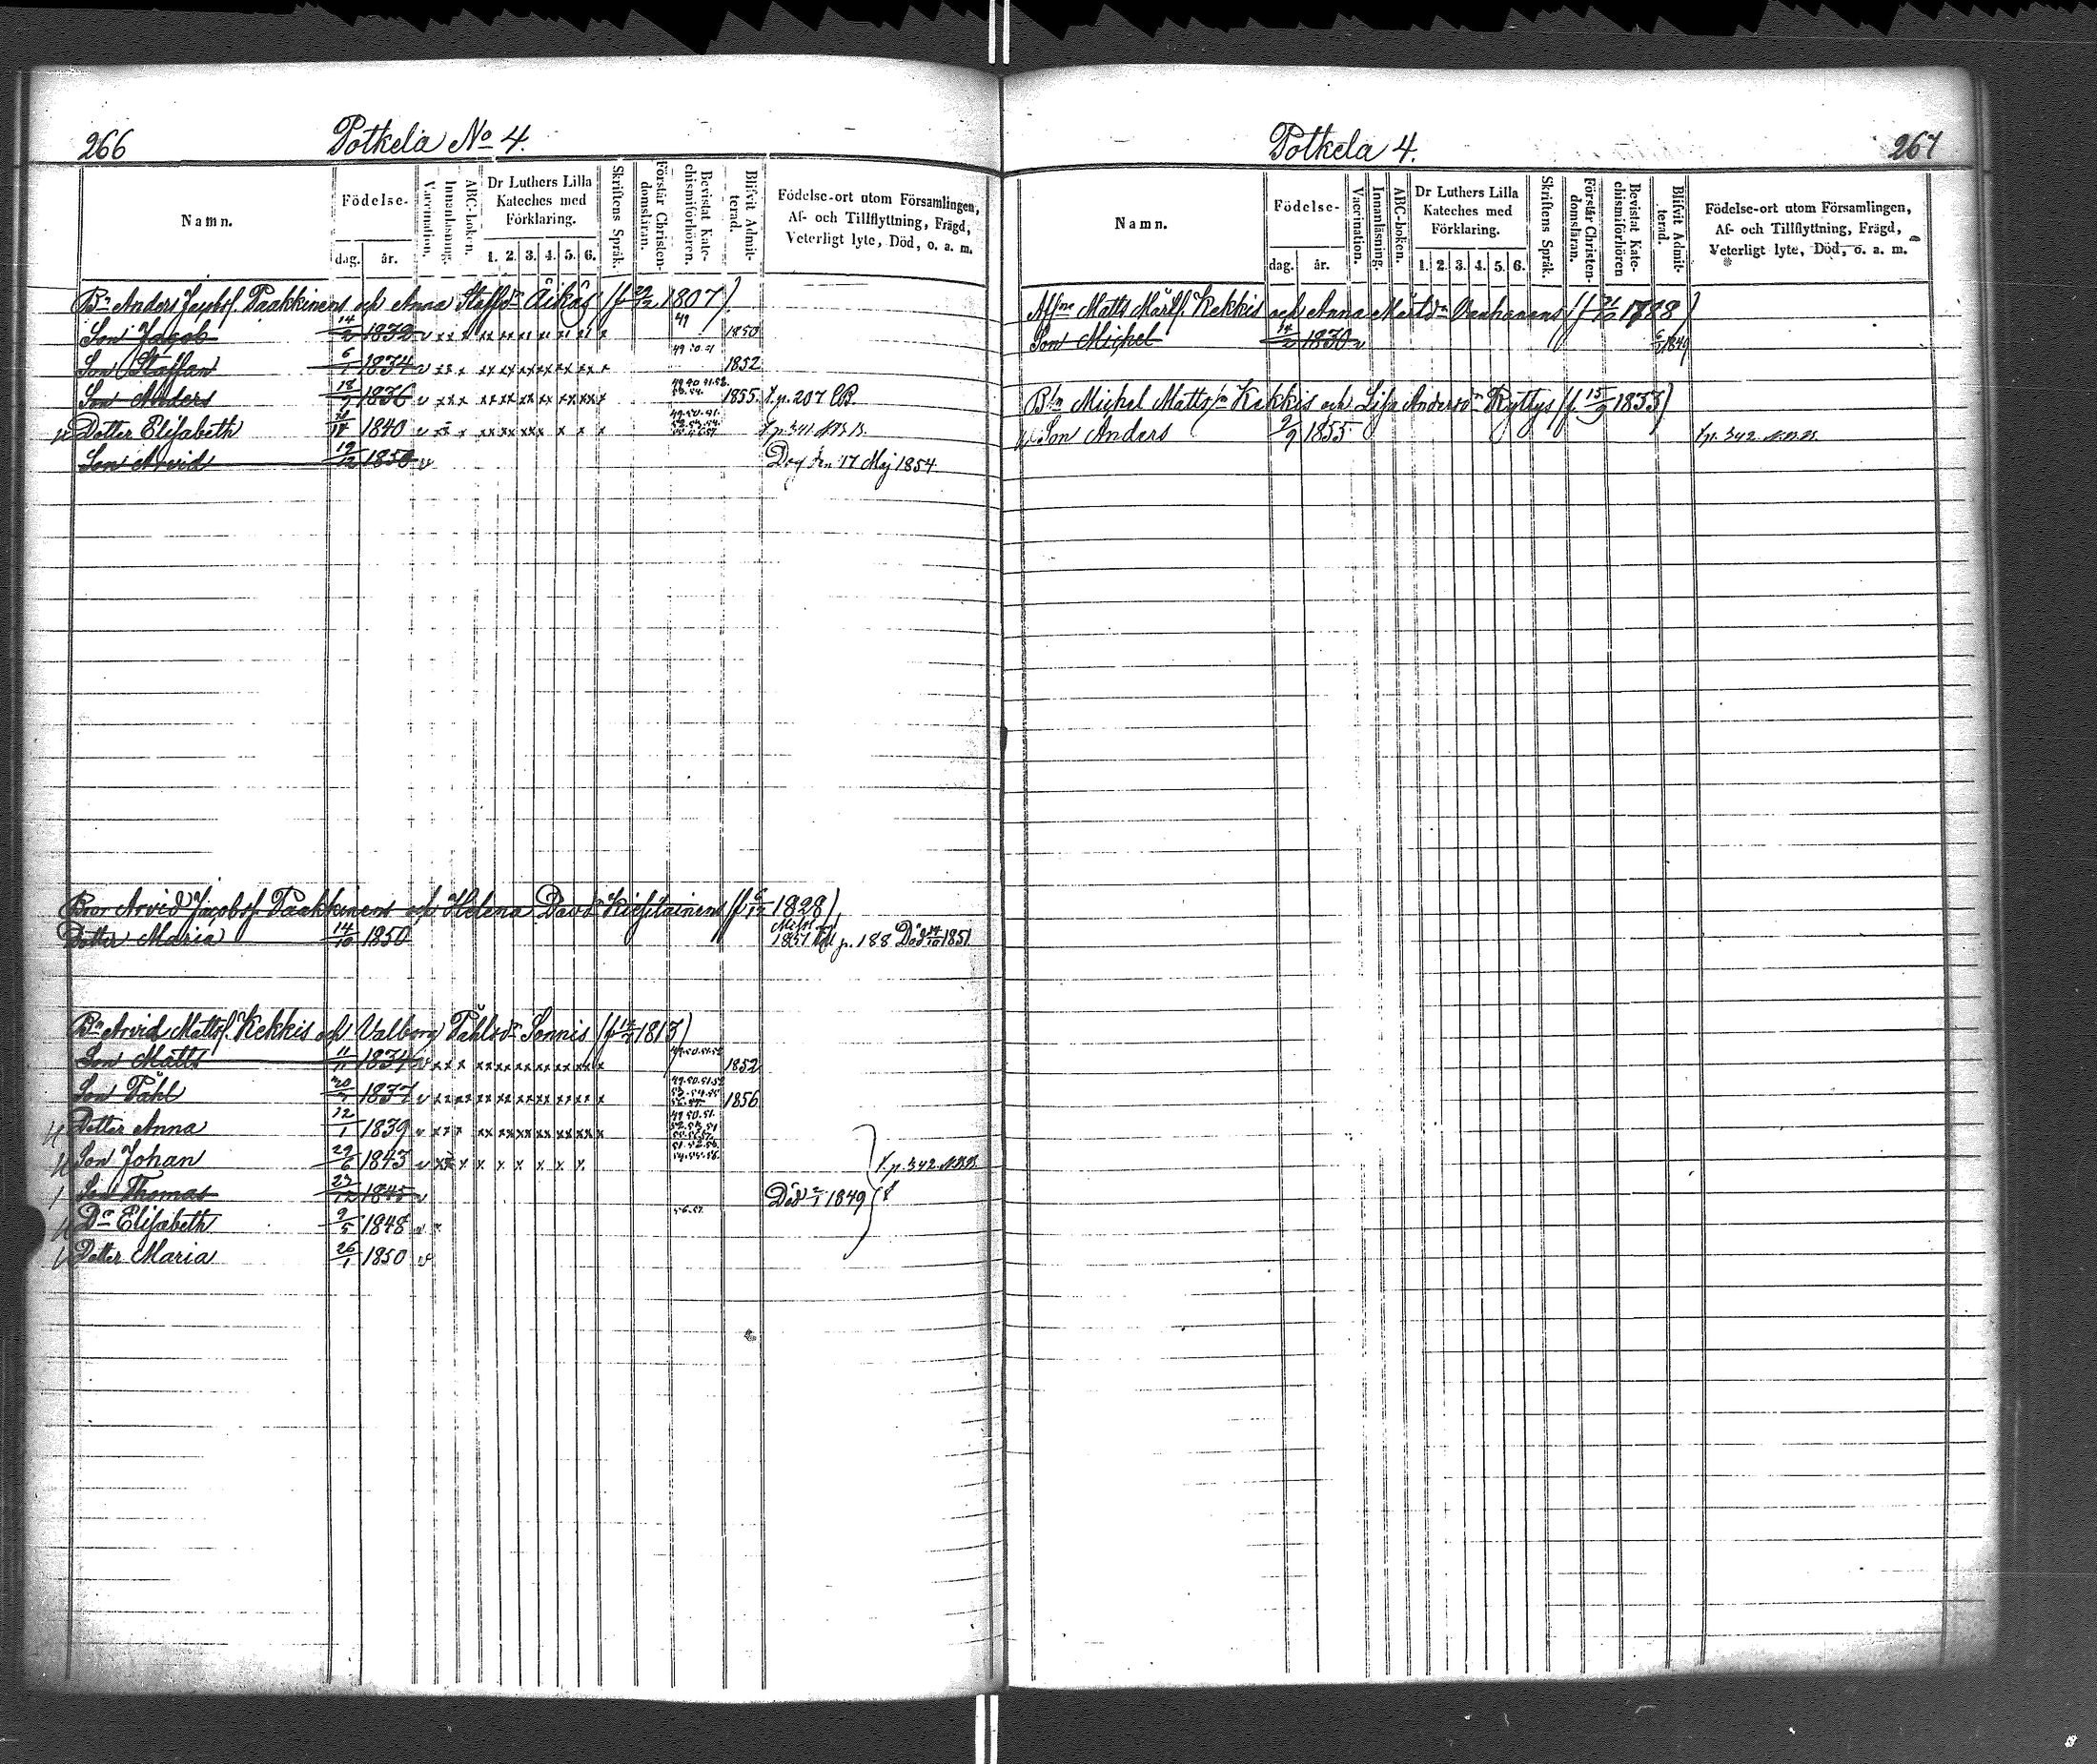 266
Potkela No 4.
Namn.
Födelse-
dag.
år.
Vaccination.
Innanläsning.
ABC-boken.
Dr Luthers Lilla
Kateches med
Förklaring.
1. 2. 3. 4. 5. 6.
Skriftens Språk.
Förstår Christen-
domsläran.
Bevistat Kate-
chismiförhören.
Blifvit Admit-
terad.
Födelse-ort utom Församlingen,
Af- och Tillflyttning, Frägd,
Veterligt lyte, Död, o. a. m.
Bn Anders Jacobss. Paakkinens och Anna Staffsdr Äikäs 1807)
Son Jacob 14/2 1832 v 49 1850
Son Staffan 6/1 1834 v 1852
Son Anders 18/2 1836 v 1855. t. p. 207 CB.
Dotter Elisabeth 1840 v t. p. 341
Son Arvid 19/12 1850 v Dog den 17 Maj 1854.
Bror Arvid Jacobss. Paakkinens och Helena Davdr (f 6/12 1828)
Dotter Maria 14/10 1850 1851 till p. 188 Död 1851
Bn Arvid Mattss. Kekkis och Valborg Påhlsdr Sonnis 1813)
Son Matts 11/11 1834 v 49.50.51.52 1852
Son Påhl 20/7 1837 v 49.50.51.52 53.54.55 1856
Dotter Anna 12/1 1839 v 49.50.51.
Son Johan 29/6 1843 v t. p. 342.
Son Thomas 27/12 1845 v Död 2/1 1849
Dr Elisabeth 9/5 1848 v 56.57
Dotter Maria 26/1 1850 v
Potkela 4.
267
Namn.
Födelse-
dag.
år.
Vaccination.
Innanläsning.
ABC-boken.
Dr Luthers Lilla
Kateches med
Förklaring.
1. 2. 3. 4. 5. 6.
Skriftens Språk.
Förstår Christen-
domsläran.
Bevistat Kate-
chismiförhören
Blifvit Admit-
terad.
Födelse-ort utom Församlingen,
Af- och Tillflyttning, Frägd,
Veterligt lyte, Död, o. a. m.
Matts Mårtss. Kekkis och Anna Mårtsdr Vanhanens
Son Michel 14/2 1830 v
Michel Mattss. Kekkis och Lisa Andersdr Kyttys (f. 15/9 1833)
Son Anders 2/9 1855 t. p. 342.